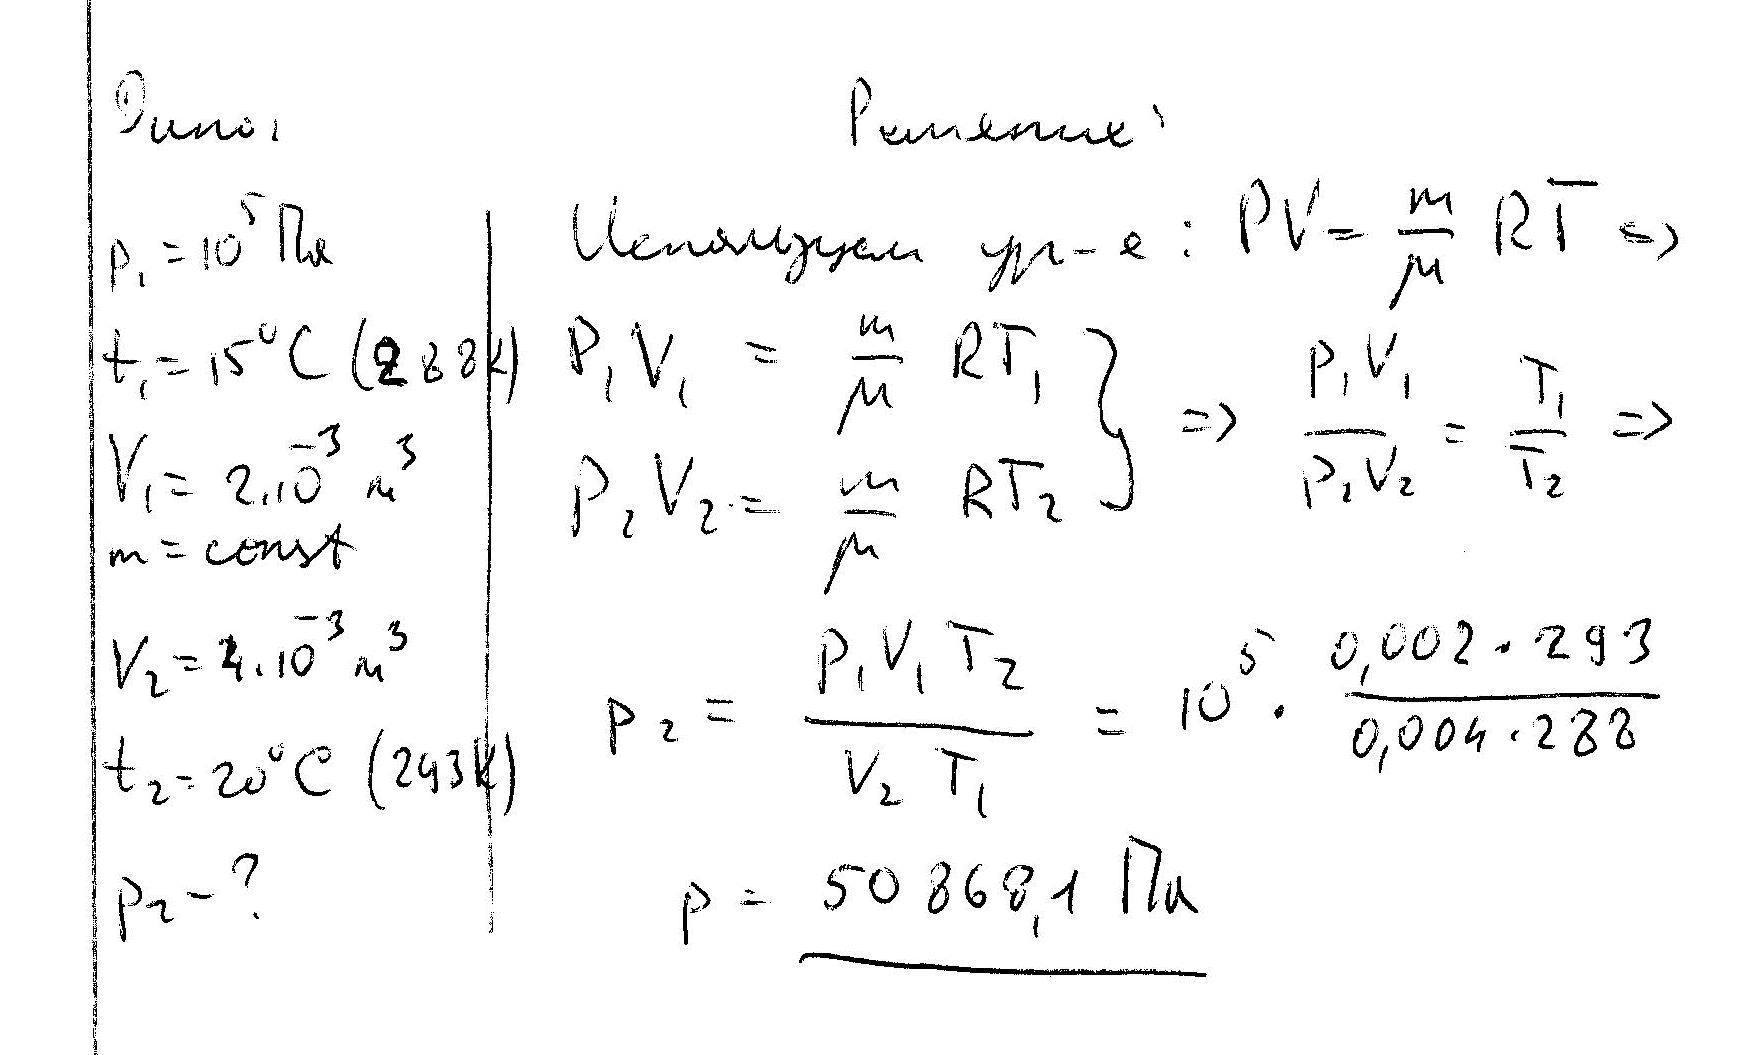 Дано:
p₁ = 10⁵ Па
t₁ = 15°C (288K)
V₁ = 2·10⁻³ м³
m = const
V₂ = 4·10⁻³ м³
t₂ = 20°C (293K)
p₂ - ?
Решение:
Используем ур-е: PV = m/μ RT =>
P₁V₁ = m/μ RT₁ } => P₁V₁/P₂V₂ = T₁/T₂ =>
P₂V₂ = m/μ RT₂
p₂ = P₁V₁T₂/V₂T₁ = 10⁵ · 0,002·293/0,004·288
p = 50868,1 Па